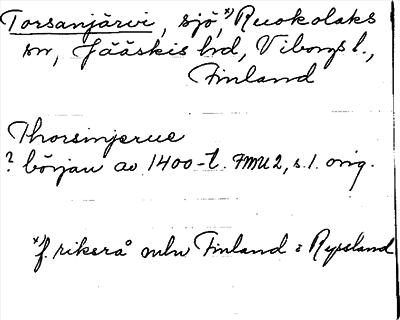 Torsanjärvi, sjö, x) Ruokolaks
sn, Jääskis hd, Viborgs l.,
Finland
Thorsinjerue
? början av 1400-t. FMU 2, s. 1. orig.
x) f. riksrå mln Finland : Ryssland